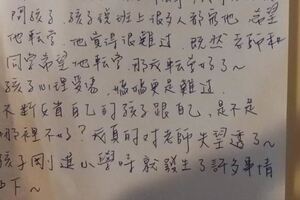 阿孩子，孩子說班上很多人都罵他，希望
他轉學，他覺得很難過，既然老師和
同學希望他轉學，那我轉學好了~
孩子心裡受傷，媽媽更是難過，
不斷反省自己的孩子跟自己，是不是
哪裡不好？我真的對老師失望透了~
孩子剛進小學時就發生了許多事情
如下~